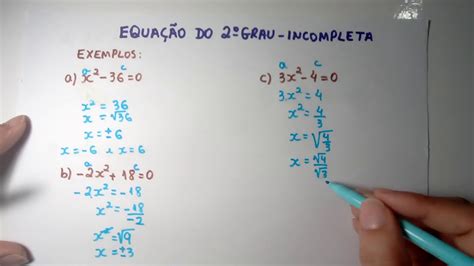 EQUAÇÃO DO 2º GRAU - INCOMPLETA
EXEMPLOS:
a c
a) x² - 36 = 0
x² = 36
x = √36
x = ± 6
x = -6 e x = 6
a c
b) -2x² + 18 = 0
-2x² = -18
x² = -18/-2
x = √9
x = ±3
a c
c) 3x² - 4 = 0
3x² = 4
x² = 4/3
x = √4/3
x = √4/√3